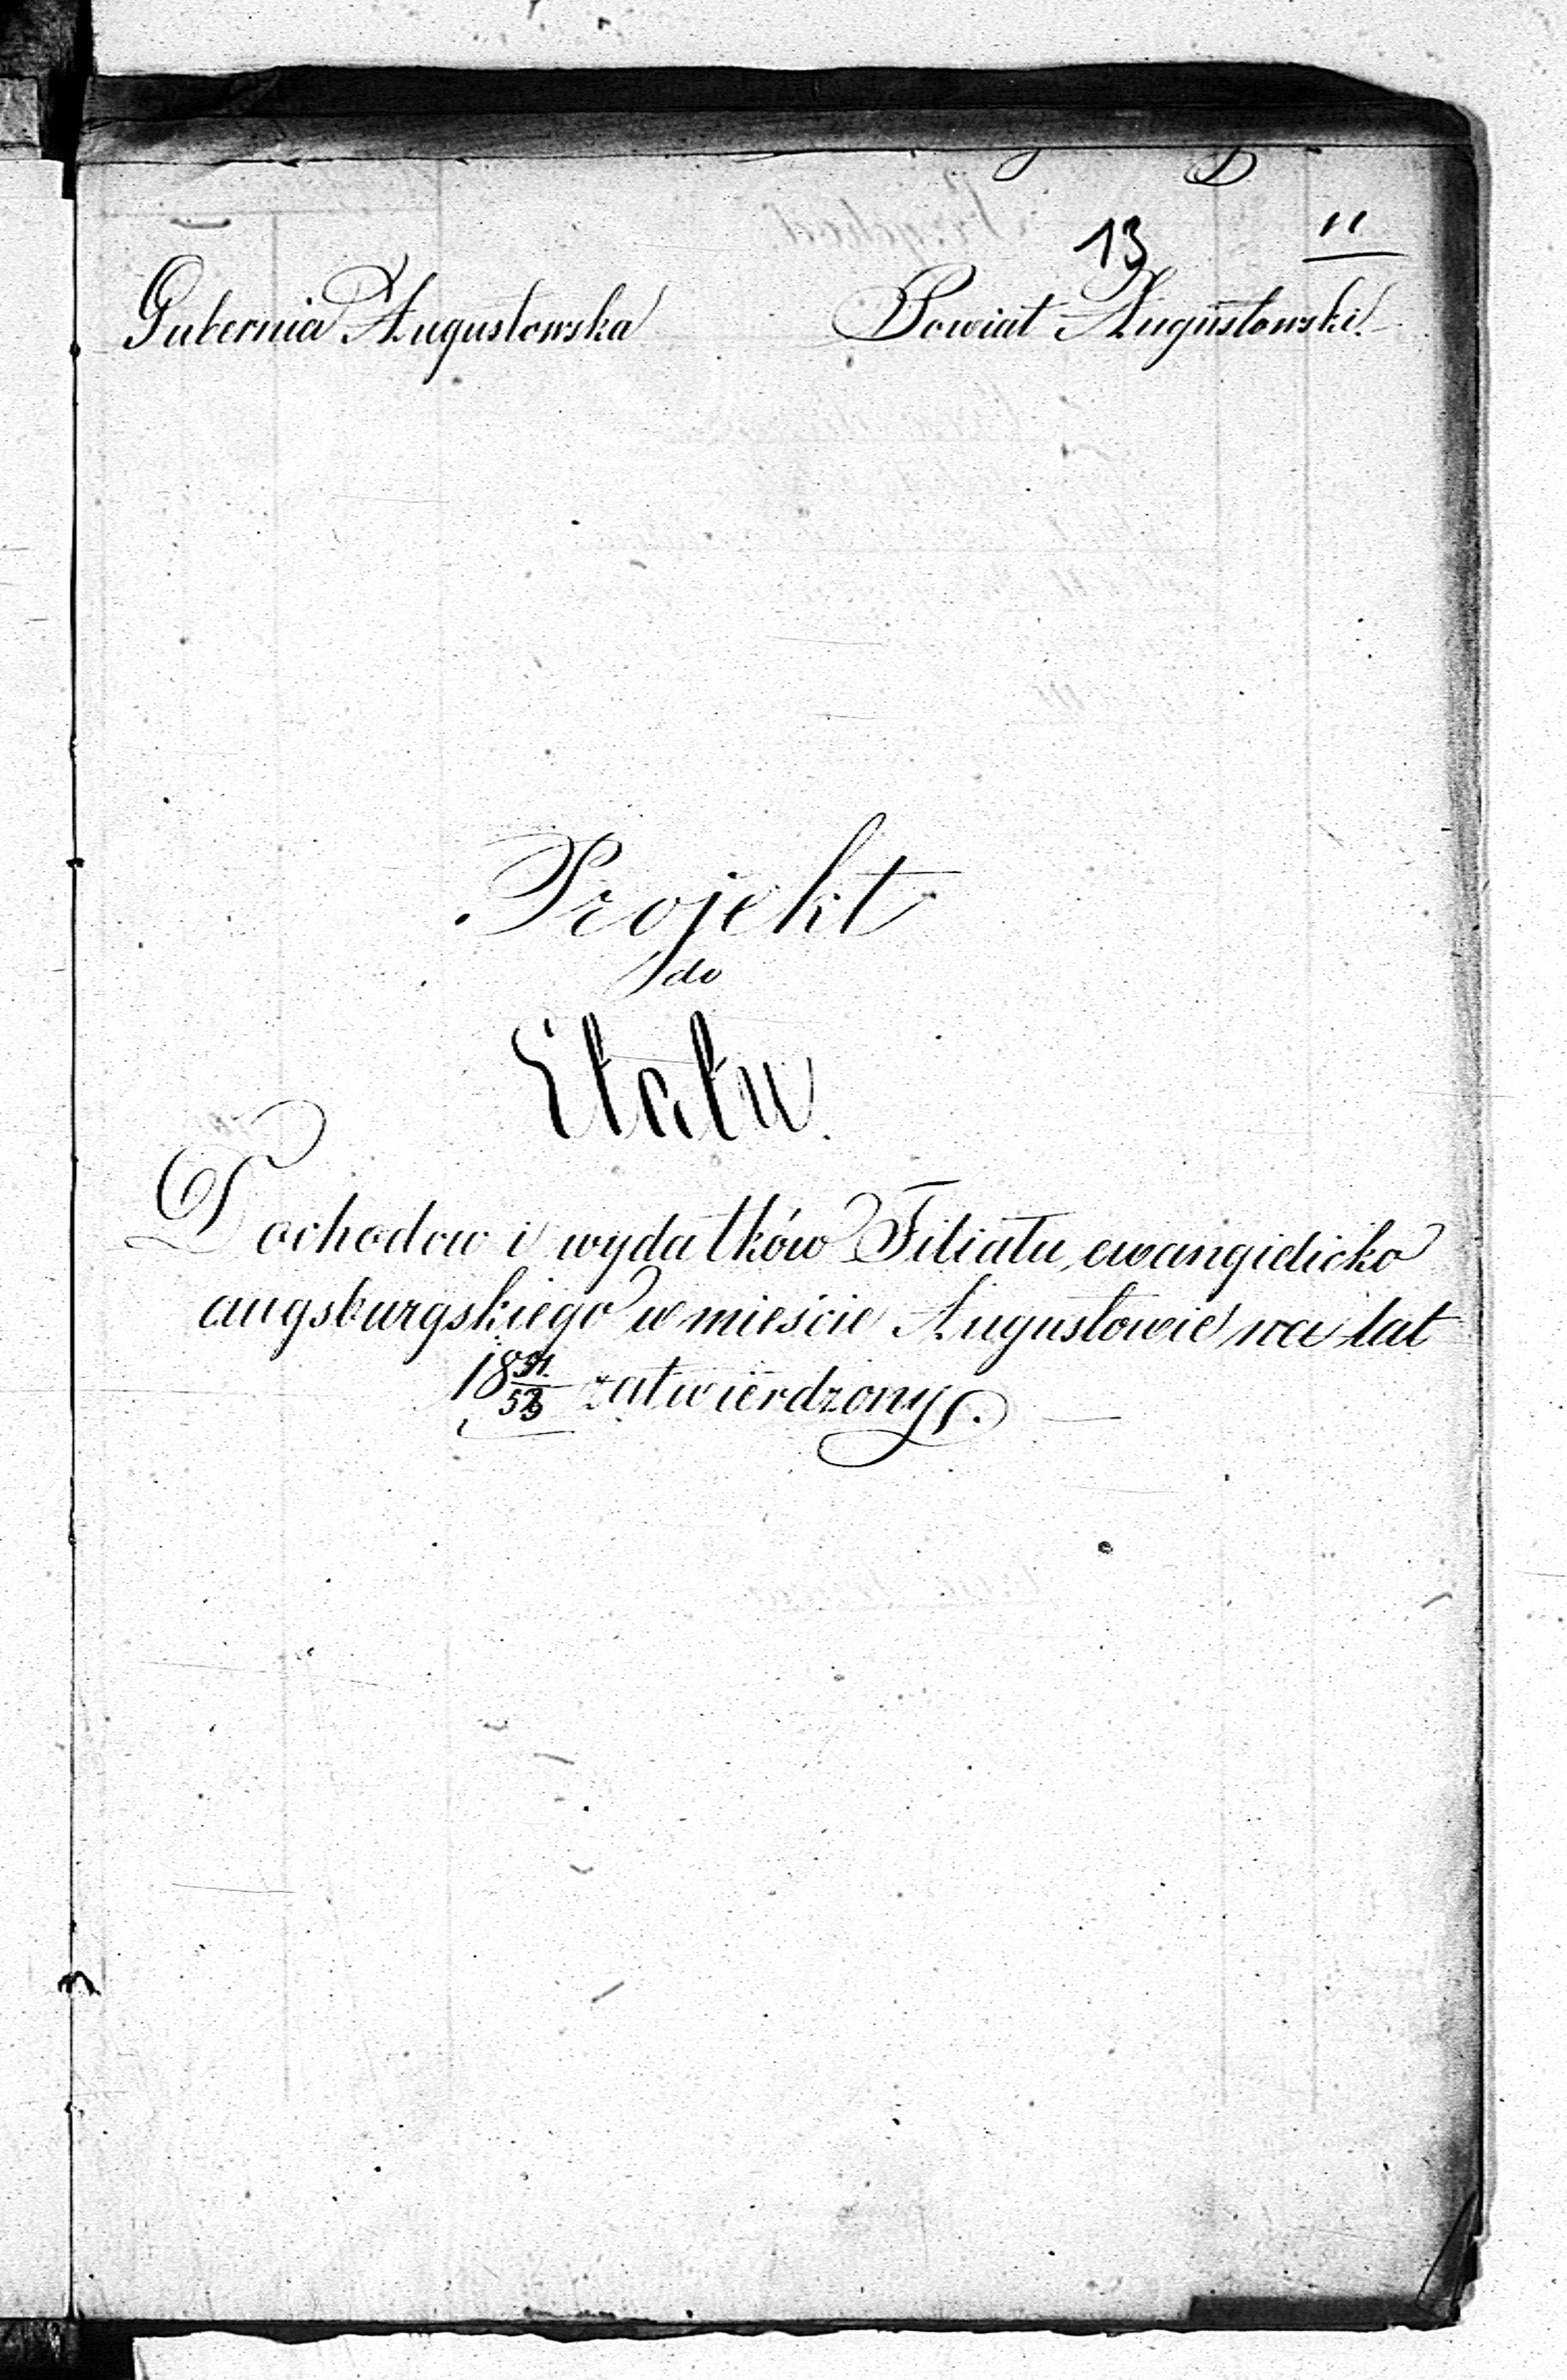 13 11
Gubernia Augustowska Powiat Augustowski
Projekt
do
Etatu.
Dochodow i wydatków Filiału ewangielicko
augsburgskiego w mieście Augustowie na lat
18 51/53 zatwierdzony.